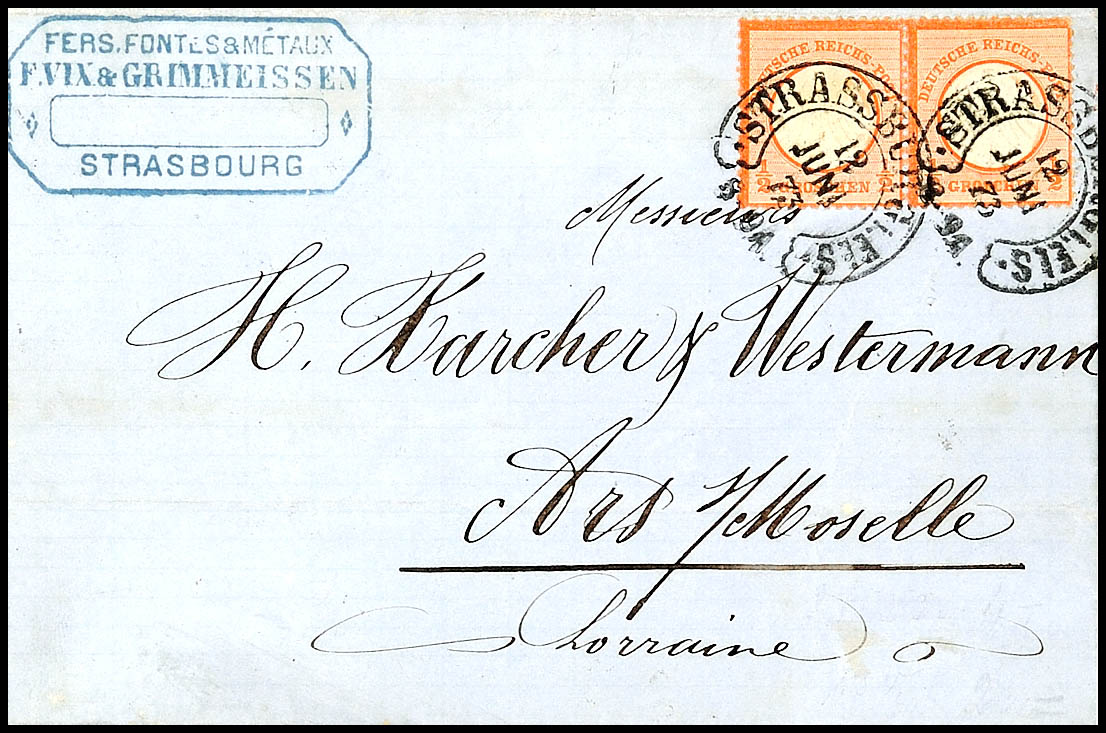 FERS, FONTES & MÉTAUX
F. VIX & GRIMMEISSEN
STRASBOURG
DEUTSCHE REICHS-PO
½ GROSCHEN ½
DEUTSCHE REICHS-PO
GROSCHEN ½
STRASSBURG I. ELS.
12
JUNI
73
STRASSBURG I. ELS.
12
JUNI
73
Messieurs
H. Karcher & Westermann
Ars s/Moselle
Lorraine